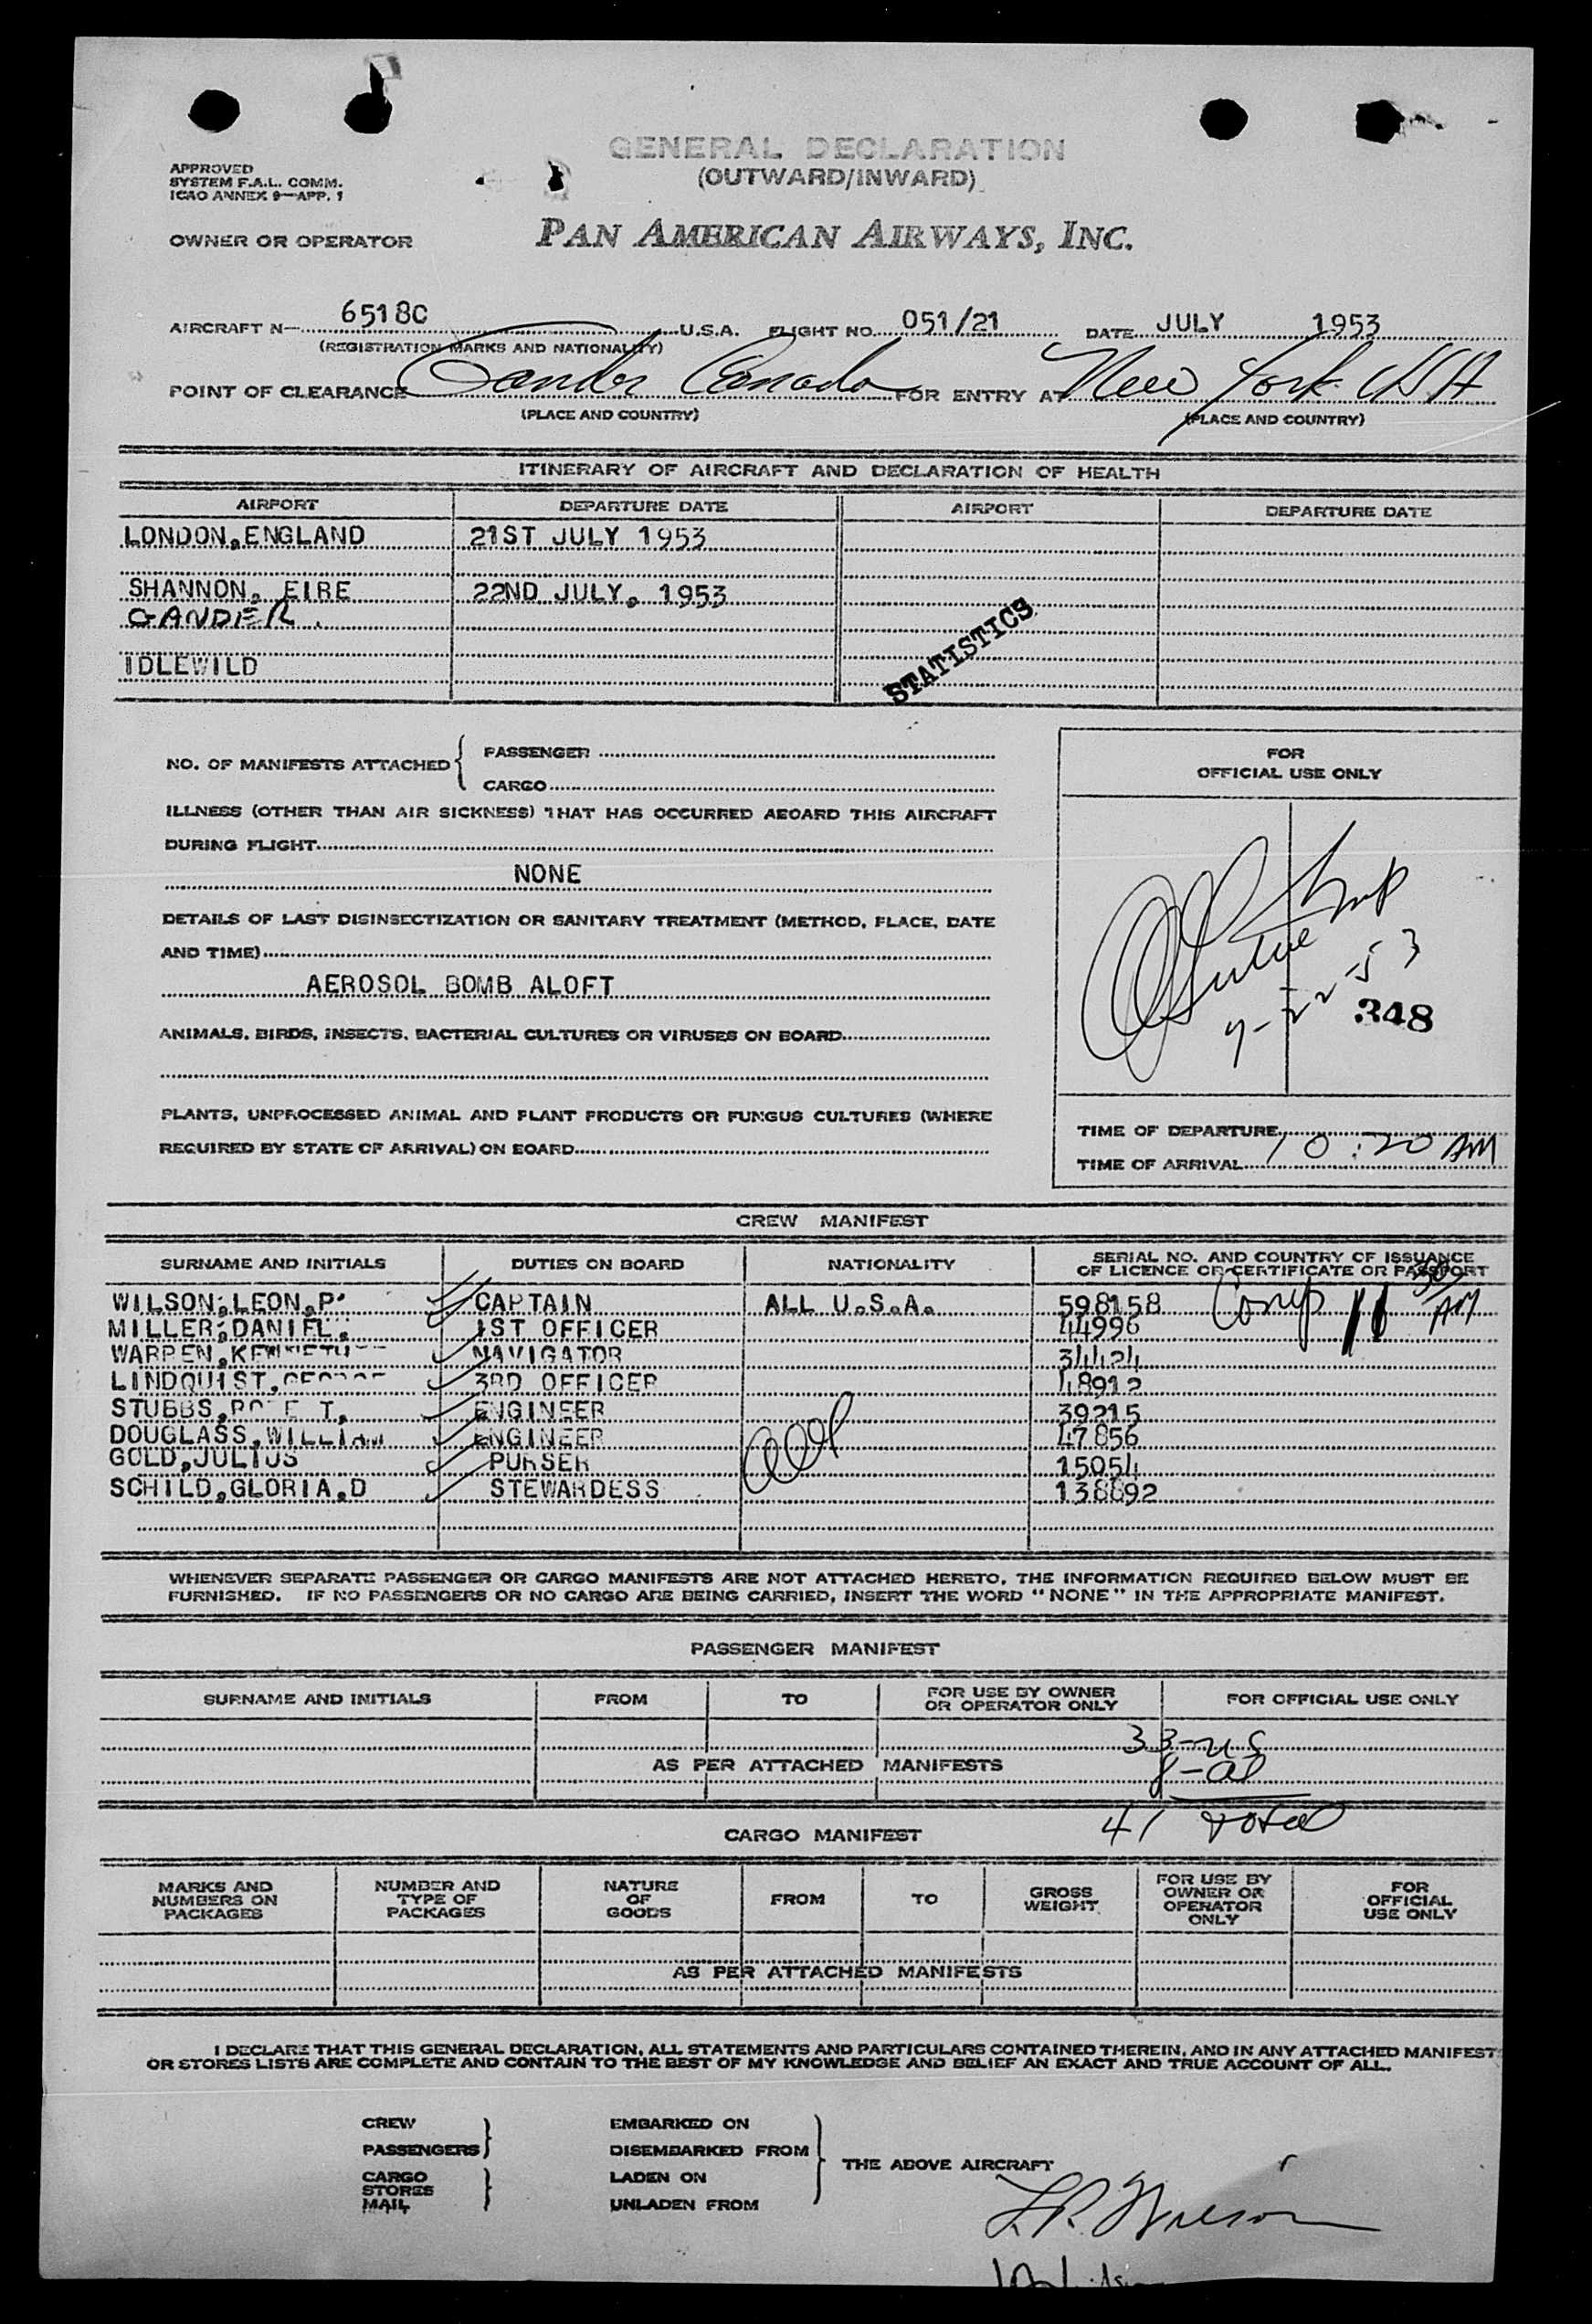 GENERAL DECLARATION
(OUTWARD/INWARD)
APPROVED
SYSTEM F.A.L. COMM.
ICAO ANNEX 9—APP. 1
OWNER OR OPERATOR PAN AMERICAN AIRWAYS, INC.
AIRCRAFT N— 6518C U.S.A. FLIGHT NO. 051/21 DATE JULY 1953
(REGISTRATION MARKS AND NATIONALITY)
POINT OF CLEARANCE Gander Canada FOR ENTRY AT New York USA
(PLACE AND COUNTRY) (PLACE AND COUNTRY)
ITINERARY OF AIRCRAFT AND DECLARATION OF HEALTH
AIRPORT DEPARTURE DATE AIRPORT DEPARTURE DATE
LONDON,ENGLAND 21ST JULY 1953
SHANNON, EIRE 22ND JULY, 1953
GANDER.
IDLEWILD
STATISTICS
NO. OF MANIFESTS ATTACHED { PASSENGER
CARGO
ILLNESS (OTHER THAN AIR SICKNESS) THAT HAS OCCURRED ABOARD THIS AIRCRAFT
DURING FLIGHT
NONE
DETAILS OF LAST DISINSECTIZATION OR SANITARY TREATMENT (METHOD, PLACE, DATE
AND TIME)
AEROSOL BOMB ALOFT
ANIMALS, BIRDS, INSECTS, BACTERIAL CULTURES OR VIRUSES ON BOARD
PLANTS, UNPROCESSED ANIMAL AND PLANT PRODUCTS OR FUNGUS CULTURES (WHERE
REQUIRED BY STATE OF ARRIVAL) ON BOARD
FOR
OFFICIAL USE ONLY
7-22-53
348
TIME OF DEPARTURE
TIME OF ARRIVAL 10:20 AM
CREW MANIFEST
SURNAME AND INITIALS DUTIES ON BOARD NATIONALITY SERIAL NO. AND COUNTRY OF ISSUANCE
OF LICENCE OR CERTIFICATE OR PASSPORT
WILSON,LEON,P. CAPTAIN ALL U.S.A. 598158 Comp 11 30 AM
MILLER,DANIEL. 1ST OFFICER 44996
WARREN,KENNETH NAVIGATOR 34424
LINDQUIST,GEORGE 3RD OFFICER 48912
STUBBS, T. ENGINEER 39215
DOUGLASS,WILLIAM ENGINEER 47856
GOLD,JULIUS PURSER 15054
SCHILD,GLORIA,D STEWARDESS 138892
WHENEVER SEPARATE PASSENGER OR CARGO MANIFESTS ARE NOT ATTACHED HERETO, THE INFORMATION REQUIRED BELOW MUST BE
FURNISHED. IF NO PASSENGERS OR NO CARGO ARE BEING CARRIED, INSERT THE WORD "NONE" IN THE APPROPRIATE MANIFEST.
PASSENGER MANIFEST
SURNAME AND INITIALS FROM TO FOR USE BY OWNER OR OPERATOR ONLY FOR OFFICIAL USE ONLY
33-US
AS PER ATTACHED MANIFESTS 8-al
41 total
CARGO MANIFEST
MARKS AND NUMBERS ON PACKAGES NUMBER AND TYPE OF PACKAGES NATURE OF GOODS FROM TO GROSS WEIGHT FOR USE BY OWNER OR OPERATOR ONLY FOR OFFICIAL USE ONLY
AS PER ATTACHED MANIFESTS
I DECLARE THAT THIS GENERAL DECLARATION, ALL STATEMENTS AND PARTICULARS CONTAINED THEREIN, AND IN ANY ATTACHED MANIFEST
OR STORES LISTS ARE COMPLETE AND CONTAIN TO THE BEST OF MY KNOWLEDGE AND BELIEF AN EXACT AND TRUE ACCOUNT OF ALL.
CREW EMBARKED ON
PASSENGERS DISEMBARKED FROM
THE ABOVE AIRCRAFT
CARGO LADEN ON
STORES
MAIL UNLADEN FROM
L.P. Wilson